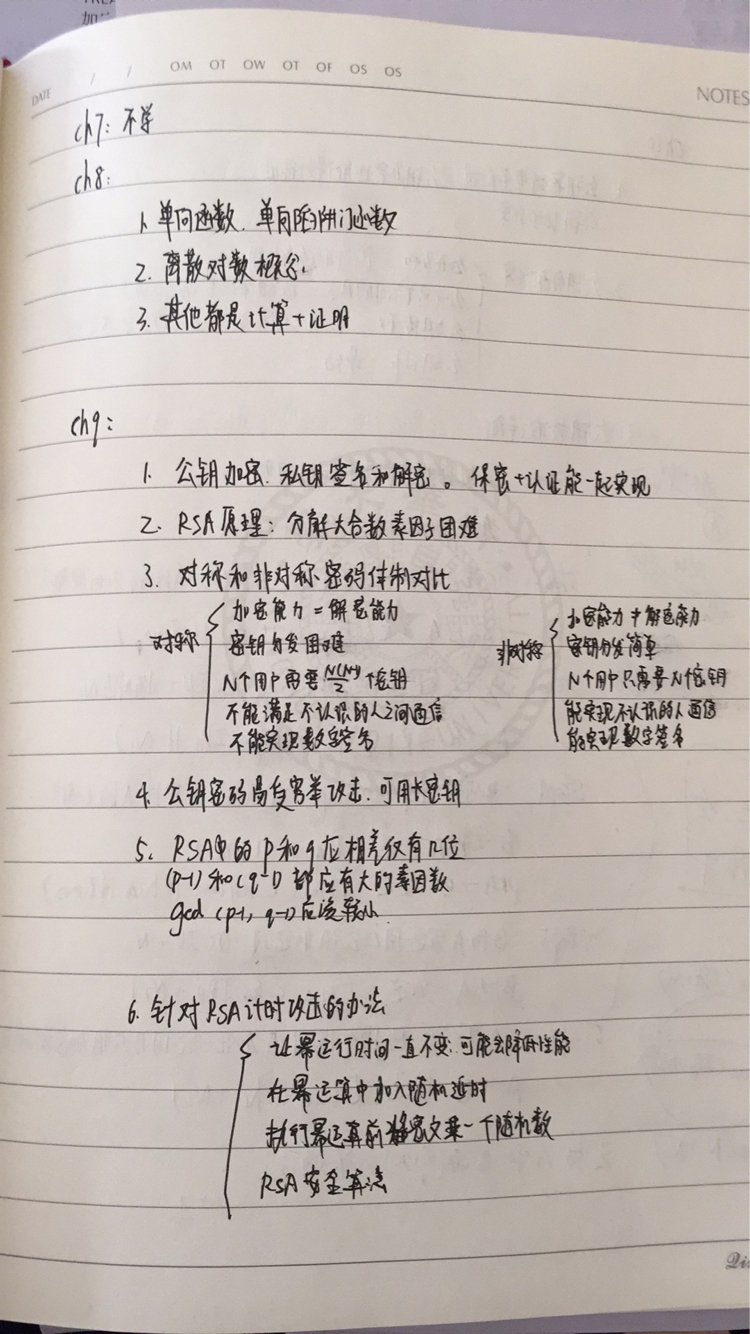 加
DATE / / OM OT OW OT OF OS OS
NOTES
ch7: 不学
ch8:
1. 单向函数、单向陷阱门函数
2. 离散对数概念.
3. 其他都是计算+证明
ch9:
1. 公钥加密、私钥签名和解密。保密+认证能一起实现
2. RSA原理: 分解大合数素因子困难
3. 对称和非对称密码体制对比
对称
加密能力=解密能力
密钥分发困难
N个用户需要 N(N-1)/2 个密钥
不能满足不认识的人之间通信
不能实现数字签名
非对称
加密能力≠解密能力
密钥分发简单
N个用户只需要N个密钥
能实现不认识的人通信
能实现数字签名
4. 公钥密码易受穷举攻击、可用长密钥
5. RSA中的p和q应相差仅有几位
(p-1)和(q-1)都应有大的素因数
gcd(p-1, q-1)应该较小
6. 针对RSA计时攻击的办法
让幂运行时间一直不变、可能会降低性能
在幂运算中加入随机延时
执行幂运算前将密文乘一个随机数
RSA安全算法